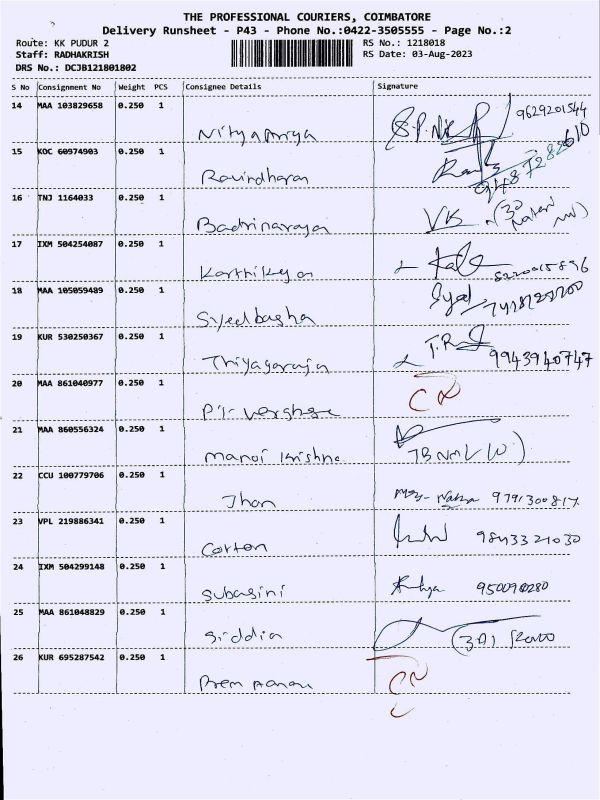 THE PROFESSIONAL COURIERS, COIMBATORE
Delivery Runsheet - P43 - Phone No.:0422-3505555 - Page No.:2
Route: KK PUDUR 2 RS No.: 1218018
Staff: RADHAKRISH RS Date: 03-Aug-2023
DRS No.: DCJB121801802
S No Consignment No Weight PCS Consignee Details Signature
14 MAA 103829658 0.250 1 Nityapriya S.P. 9629201544
15 KOC 60974903 0.250 1 Ravindharan
16 TNJ 1164033 0.250 1 Badrinarayan VK
17 IXM 504254087 0.250 1 Karthikeyan
18 MAA 105059489 0.250 1 Syedbasha Syed
19 KUR 530250367 0.250 1 Thiyagaraja 9943940747
20 MAA 861040977 0.250 1 P.T. Verghese CN
21 MAA 860556324 0.250 1 Manoj Krishna
22 CCU 100779706 0.250 1 Jhon 9791300817
23 VPL 219886341 0.250 1 Cotton 9843321030
24 IXM 504299148 0.250 1 Subasini
25 MAA 861048829 0.250 1 Siddia
26 KUR 695287542 0.250 1 Prem CN